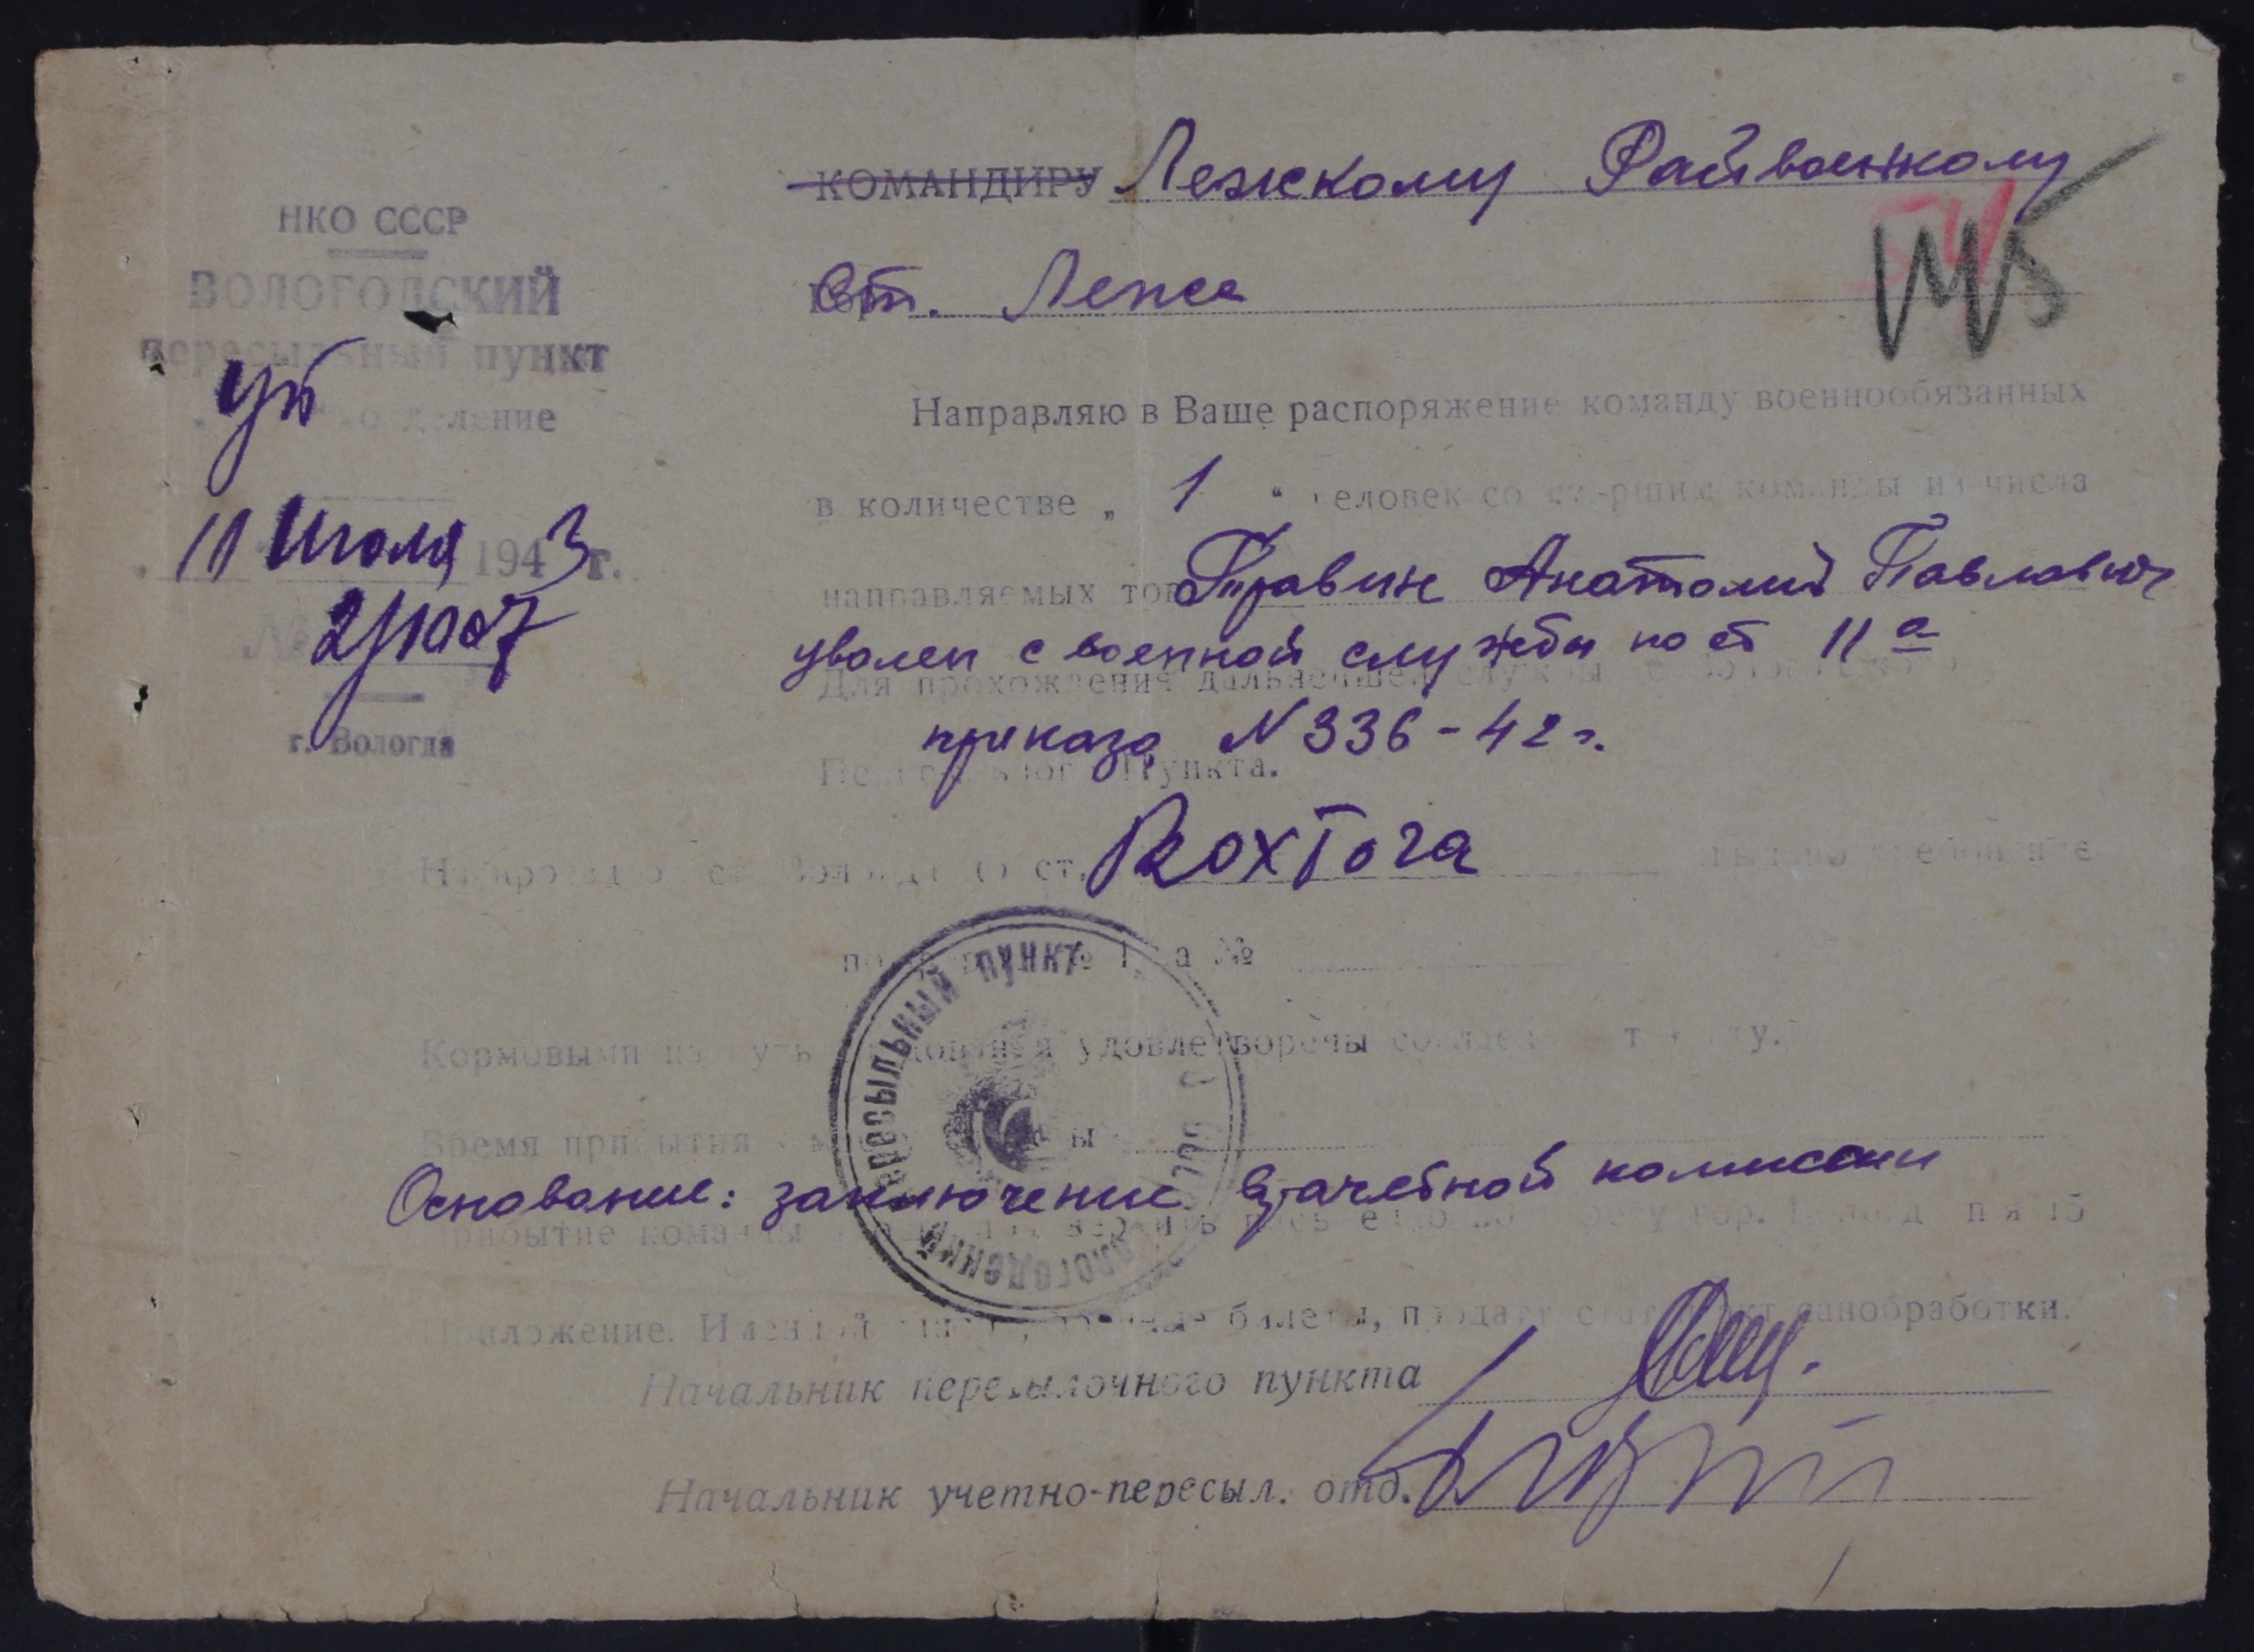 НКО СССР
ВОЛОГОДСКИЙ
пересыльный пункт
отделение
11 Июля 1943 г.
№ 2/1007
г. Вологда
КОМАНДИРУ Лежскому Райвоенкому
Ст. Лежа
Направляю в Ваше распоряжение команду военнообязанных
в количестве „ 1 “ человек со старшим команды из числа
направляемых тов. Травин Анатолий Павлович
уволен с военной службы по ст 11 а
Для прохождения дальнейшей службы с Вологодского
приказа N 336-42 г.
Пересыльного Пункта.
ст. Вохтога
№ 1, а №
Кормовыми на путь следования удовлетворены
Время прибытия
Основание: заключение врачебной комиссии
Прибытие команды гор. Вологда п я 15
Приложение. Именной билеты, санобработки.
Начальник пересылочного пункта
Начальник учетно-пересыл. отд.
Вологодский пересыльный пункт